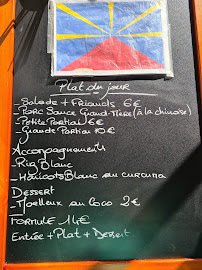 Plat du jour
- Salade + Friands 6€
- Porc Sauce Grand-Mère (à la chinoise)
- Petite Portion 6€
- Grande Portion 10€
Accompagnements
- Riz Blanc
- Haricots Blanc au curcuma
Dessert
- Moelleux au Coco 2€
Formule 14€
Entrée + Plat + Dessert